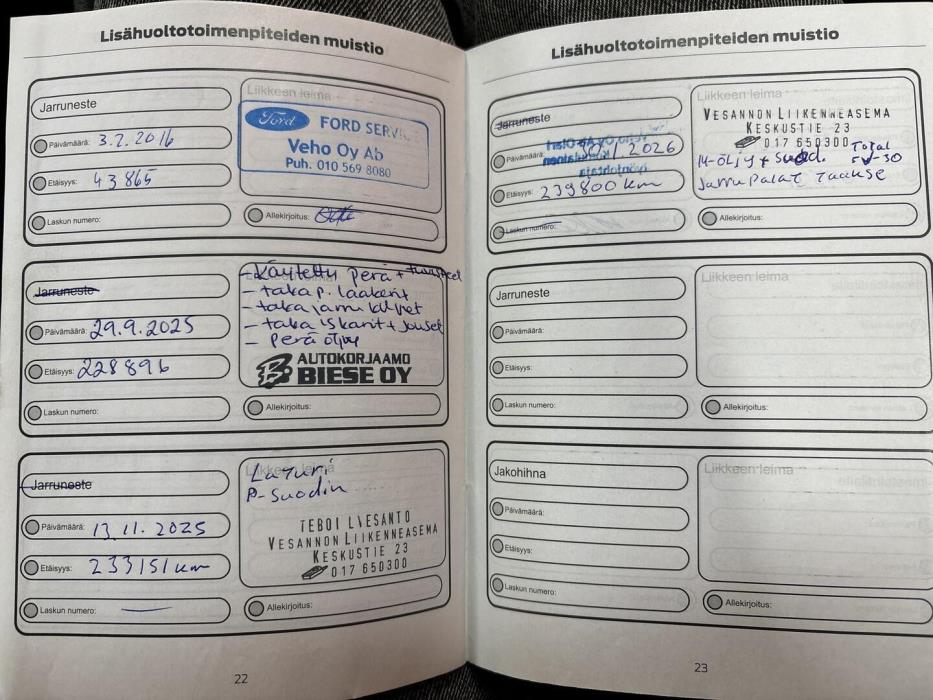 Lisähuoltotoimenpiteiden muistio
Jarruneste
Päivämäärä: 3.2.2016
Etäisyys: 43865
Laskun numero:
Liikkeen leima
Ford FORD SERV
Veho Oy Ab
Puh. 010 569 8080
Allekirjoitus:
Jarruneste
Päivämäärä: 29.9.2025
Etäisyys: 228896
Laskun numero:
- Käytetty perä +
- taka p. laakerit
- taka jarru kilvet
- taka iskarit + jouset
- perä öljy
AUTOKORJAAMO
BIESE OY
Allekirjoitus:
Jarruneste
Päivämäärä: 13.11.2025
Etäisyys: 233151 km
Laskun numero:
Liikkeen leima
Laturi
P-Suodin
TEBOIL VESANTO
VESANNON LIIKENNEASEMA
KESKUSTIE 23
017 650300
Allekirjoitus:
22
Lisähuoltotoimenpiteiden muistio
Jarruneste
Päivämäärä: 2026
Etäisyys: 239800 km
Laskun numero:
Liikkeen leima
VESANNON LIIKENNEASEMA
KESKUSTIE 23
017 650300
M-öljy + Suod. Total
Jarru palat taakse
Allekirjoitus:
Jarruneste
Päivämäärä:
Etäisyys:
Laskun numero:
Liikkeen leima
Allekirjoitus:
Jakohihna
Päivämäärä:
Etäisyys:
Laskun numero:
Liikkeen leima
Allekirjoitus:
23